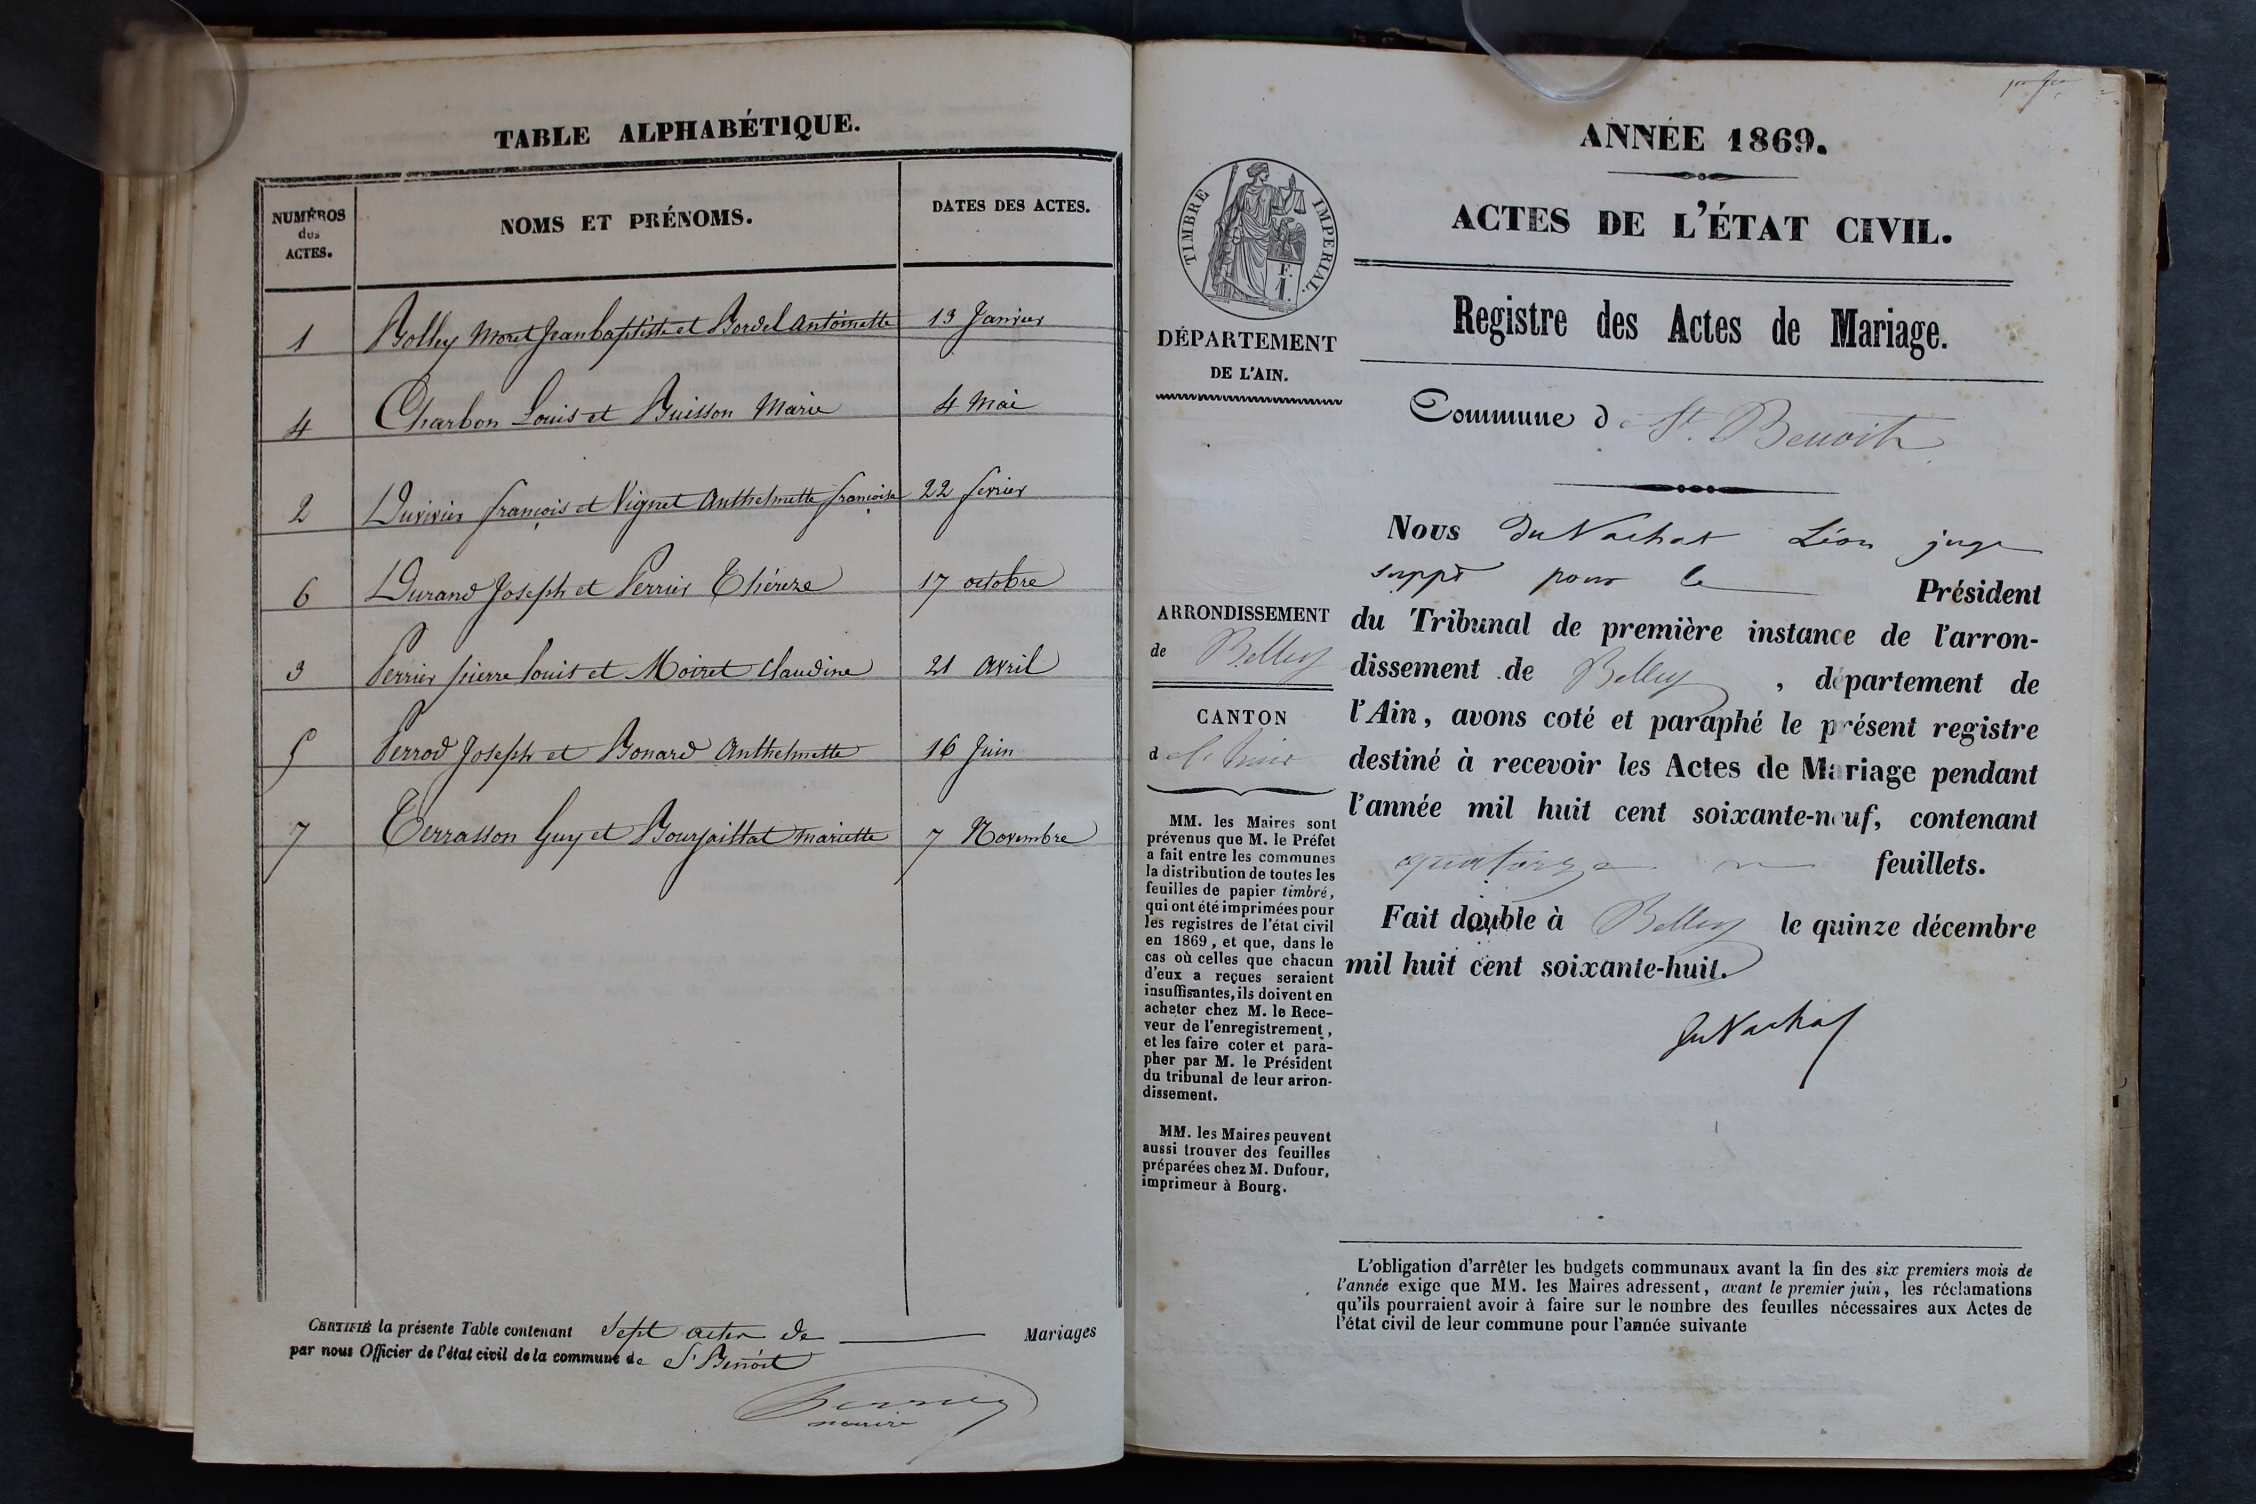 TABLE ALPHABÉTIQUE.
NUMÉROS
des
ACTES.
NOMS ET PRÉNOMS.
DATES DES ACTES.
1 Bolley Moret Jean baptiste et Bordel Antoinette 13 Janvier
4 Charbon Louis et Buisson Marie 4 Mai
2 Duvivier françois et Vignet Anthelmette françoise 22 fevrier
6 Durand Joseph et Perrier Thérèze 17 octobre
3 Perrier pierre Louis et Moiret Claudine 21 Avril
5 Perrod Joseph et Bonard Anthelmette 16 Juin
7 Terrasson Guy et Bourjaillat Mariette 7 Novembre
CERTIFIÉ la présente Table contenant Sept actes de Mariages
par nous Officier de l'état civil de la commune de St Benoit
maire
1er feu
ANNÉE 1869.
ACTES DE L'ÉTAT CIVIL.
TIMBRE IMPERIAL.
F.
1.
DÉPARTEMENT
DE L'AIN.
Registre des Actes de Mariage.
Commune de St. Benoit
Nous Du Vachat Léon juge
suppt pour le Président
du Tribunal de première instance de l'arron-
dissement de Belley, département de
l'Ain, avons coté et paraphé le présent registre
destiné à recevoir les Actes de Mariage pendant
l'année mil huit cent soixante-neuf, contenant
quatorze feuillets.
Fait double à Belley le quinze décembre
mil huit cent soixante-huit.
Du Vachat
ARRONDISSEMENT
de Belley
CANTON
d
MM. les Maires sont
prévenus que M. le Préfet
a fait entre les communes
la distribution de toutes les
feuilles de papier timbré,
qui ont été imprimées pour
les registres de l'état civil
en 1869, et que, dans le
cas où celles que chacun
d'eux a reçues seraient
insuffisantes, ils doivent en
acheter chez M. le Rece-
veur de l'enregistrement,
et les faire coter et para-
pher par M. le Président
du tribunal de leur arron-
dissement.
MM. les Maires peuvent
aussi trouver des feuilles
préparées chez M. Dufour,
imprimeur à Bourg.
L'obligation d'arrêter les budgets communaux avant la fin des six premiers mois de
l'année exige que MM. les Maires adressent, avant le premier juin, les réclamations
qu'ils pourraient avoir à faire sur le nombre des feuilles nécessaires aux Actes de
l'état civil de leur commune pour l'année suivante